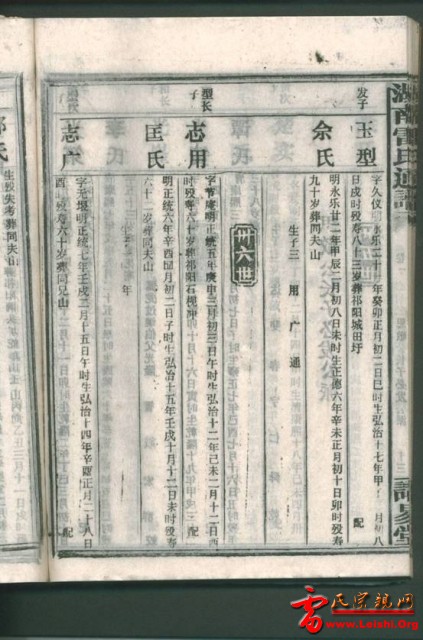 湖南雷氏通谱
十三
谱易堂
发子
玉型
字久仪明永乐二十一年癸卯正月初二日巳时生弘治十七年甲
月初八
日戌时殁寿八十三岁葬祁阳城田圩
配
佘氏
明永乐廿二年甲辰二月初八日未时生正德六年辛未正月初十日卯时殁寿
九十岁葬同夫山
生子三
用
广
通
卅六世
型长
子
志用
字节庵明正统五年庚申三月初三日午时生弘治十二年己未二月十二日酉
时殁寿六十岁葬祁阳石枧冲
配
匡氏
明正统六年辛酉四月初二日子时生弘治十五年壬戌十月十二日未时殁寿
六十二岁葬同夫山
年
志广
字无堰明正统七年壬戌二月十五日午时生弘治十四年辛酉正月二十八日
酉时殁寿六十岁葬同兄山
配
氏
生殁失考葬同夫山
雷氏宗亲网
www.Leishi.Org